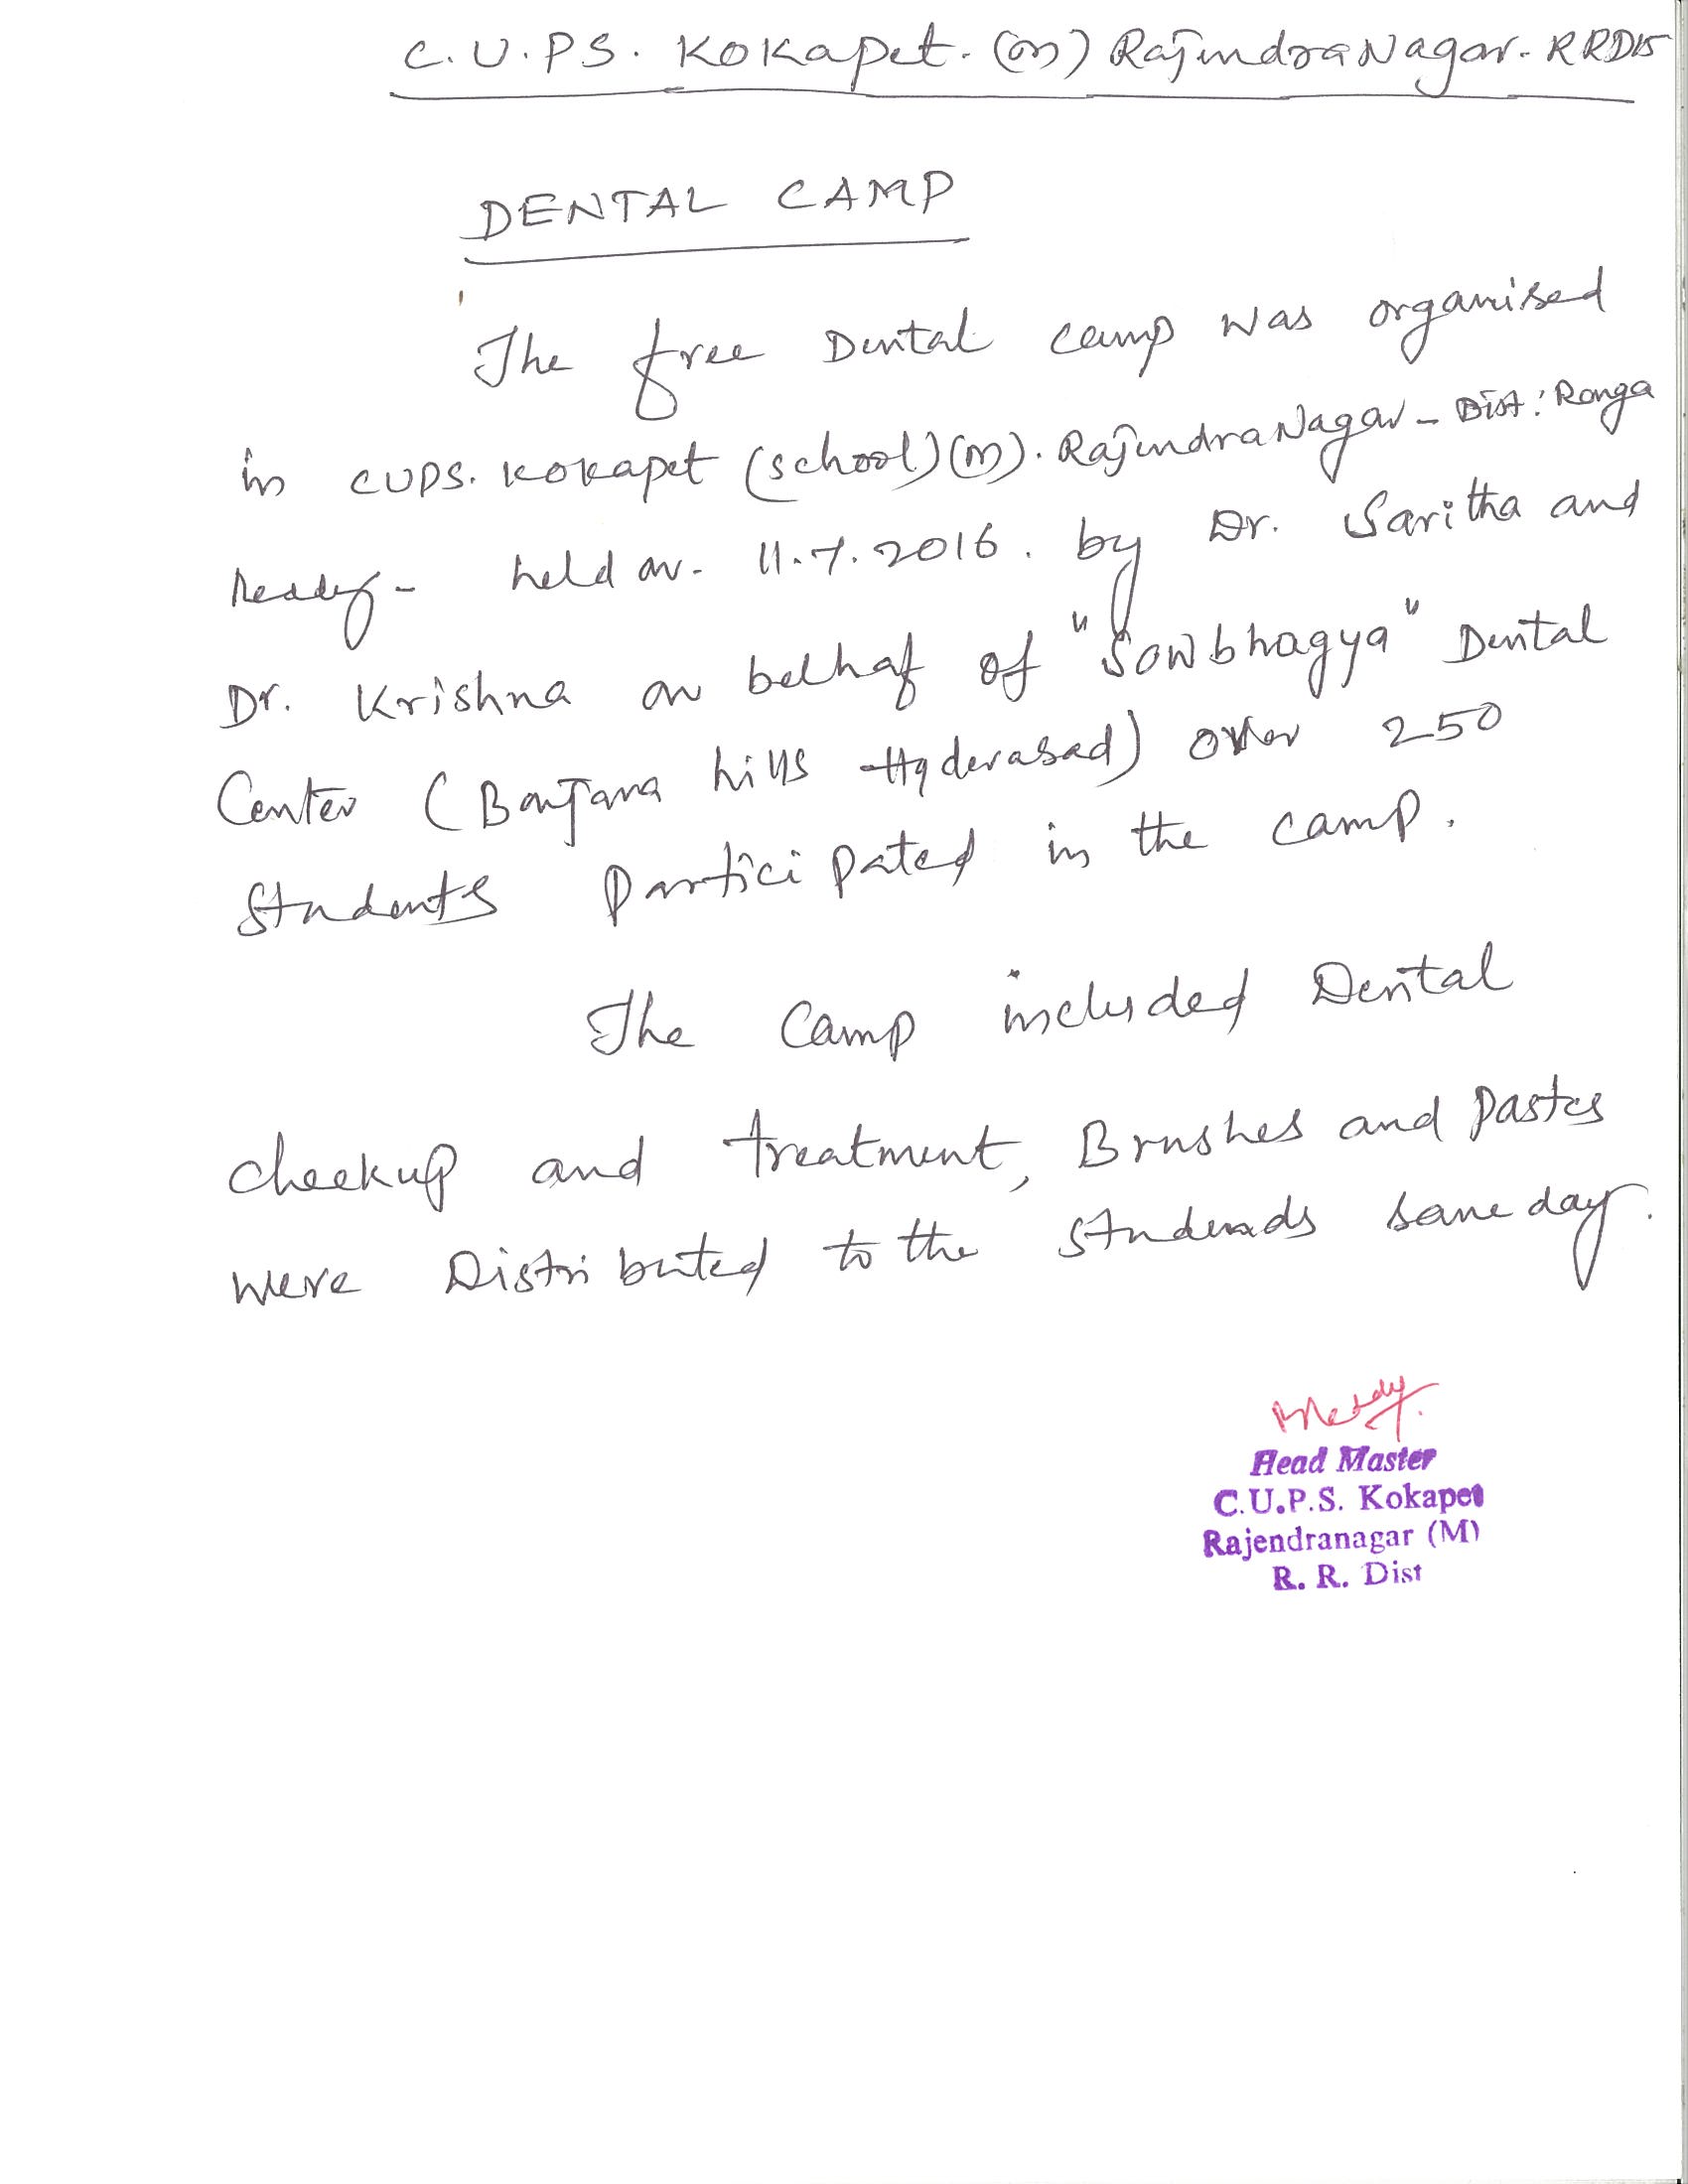 C.U.P.S. Kokapet. (M) RajendraNagar. RRDis
DENTAL CAMP
The free Dental camp was organised
in CUPS. Kokapet (school) (M). RajendraNagar - Dist: Ranga
Reddy - held on. 11.7.2016. by Dr. Saritha and
Dr. Krishna on belhaf of "Sowbhagya" Dental
Center (Banjana hills Hyderabad) over 250
Students Participated in the camp.
The Camp included Dental
checkup and treatment, Brushes and Pastes
were Distributed to the students same day.
Head Master
C.U.P.S. Kokapet
Rajendranagar (M)
R. R. Dist